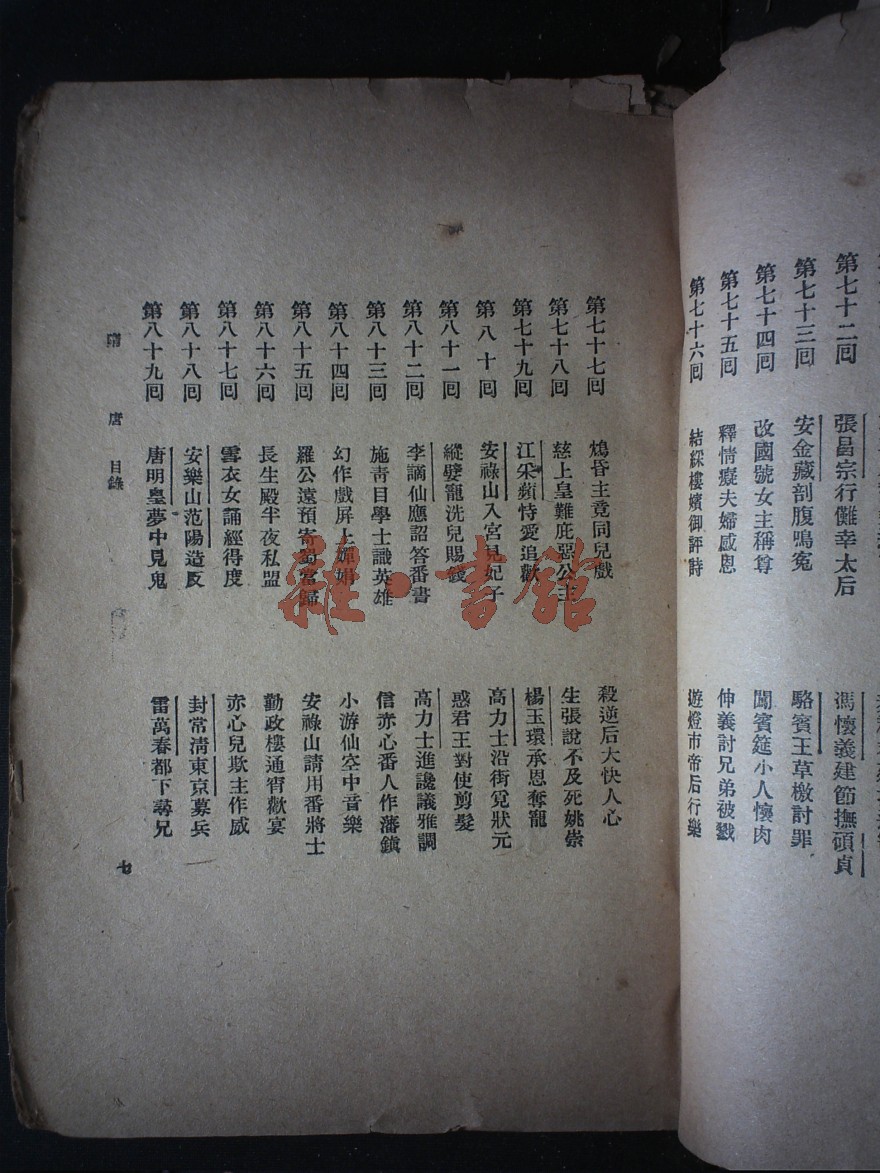 第七十二囘　張昌宗行儺幸太后　馮懷義建節撫碩貞
第七十三囘　安金藏剖腹鳴冤　駱賓王草檄討罪
第七十四囘　改國號女主稱尊　闖賓筵小人懷肉
第七十五囘　釋情癡夫婦感恩　伸義討兄弟被戮
第七十六囘　結綵樓嬪御評詩　遊燈市帝后行樂
第七十七囘　鴆昏主竟同兒戲　殺逆后大快人心
第七十八囘　慈上皇難庇惡公主　生張說不及死姚崇
第七十九囘　江采蘋恃愛追歡　楊玉環承恩奪寵
第八十囘　安祿山入宮見妃子　高力士沿街覓狀元
第八十一囘　縱嬖寵洗兒賜錢　惑君王對使剪髮
第八十二囘　李謫仙應詔答番書　高力士進讒議雅調
第八十三囘　施靑目學士識英雄　信赤心番人作藩鎮
第八十四囘　幻作戲屏上嬋娟　小游仙空中音樂
第八十五囘　羅公遠預寄蜀當歸　安祿山請用番將士
第八十六囘　長生殿半夜私盟　勤政樓通宵歡宴
第八十七囘　雪衣女誦經得度　赤心兒欺主作威
第八十八囘　安樂山范陽造反　封常淸東京募兵
第八十九囘　唐明皇夢中見鬼　雷萬春都下尋兄
隋唐　目錄　七
雜·書館